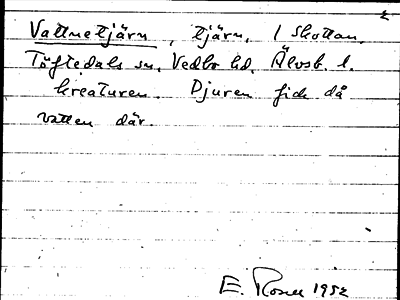 Vattnetjärn, tjärn, 1 Skottan,
Töftedals sn, Vedbo hd, Älvsb. l.
kreaturen. Djuren fick då
vatten där.
E. Rosell 1952